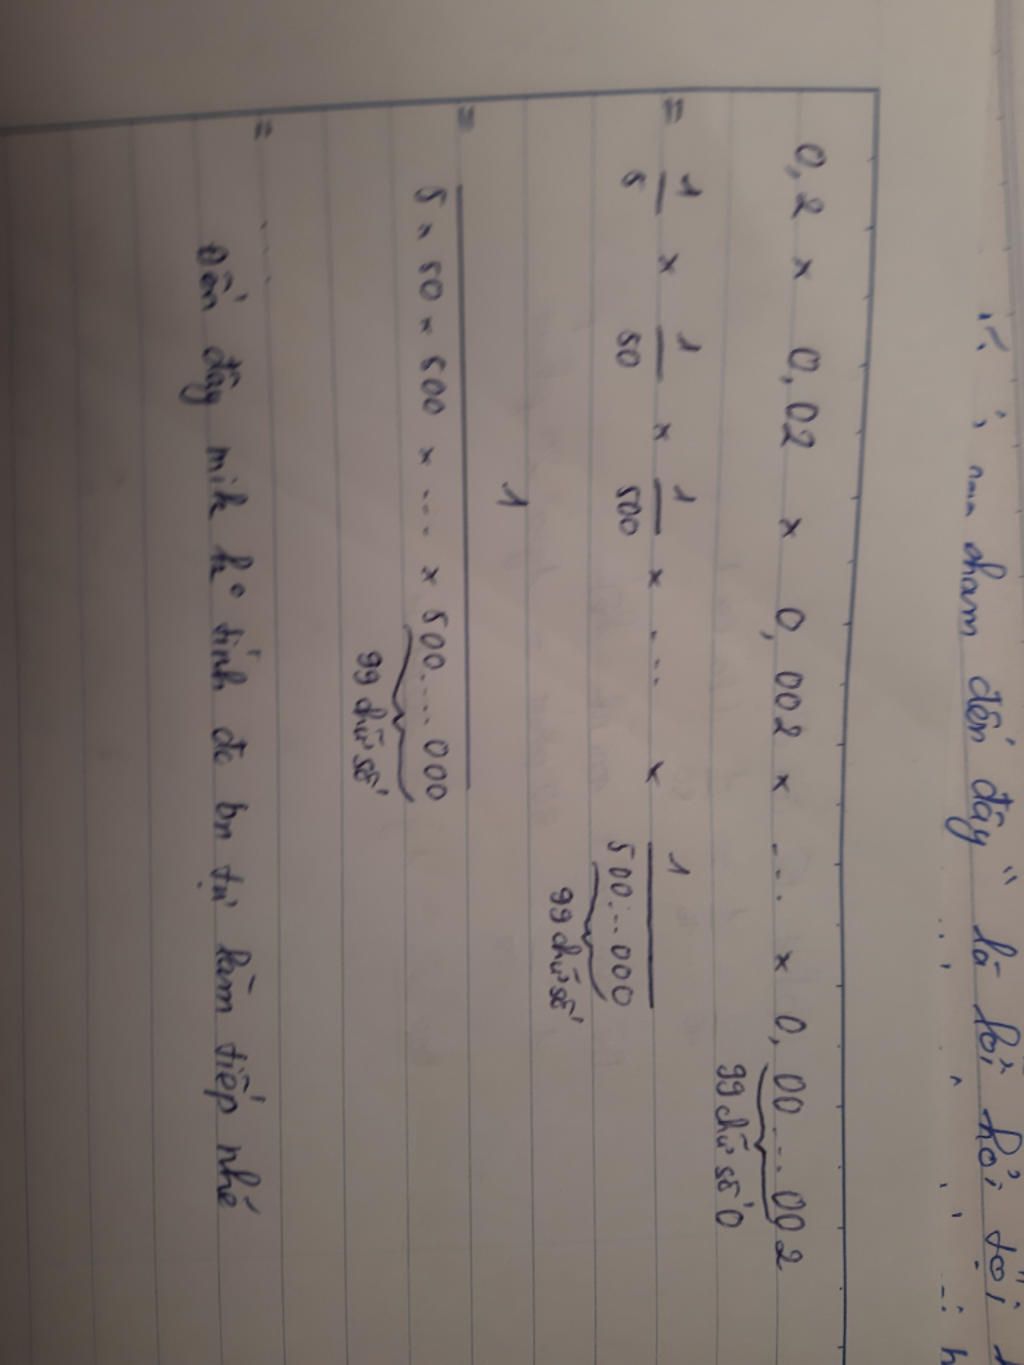 chấm đến đây" là lời hỏi tội
0,2 x 0,02 x 0,002 x ... x 0,00...002
99 chữ số 0
= 1/5 x 1/50 x 1/500 x ... x 1/500...000
99 chữ số
= 1/5 x 50 x 500 x ... x 500....000
99 chữ số
= ....
Đến đây mik ko tính đc bn tự làm tiếp nhé